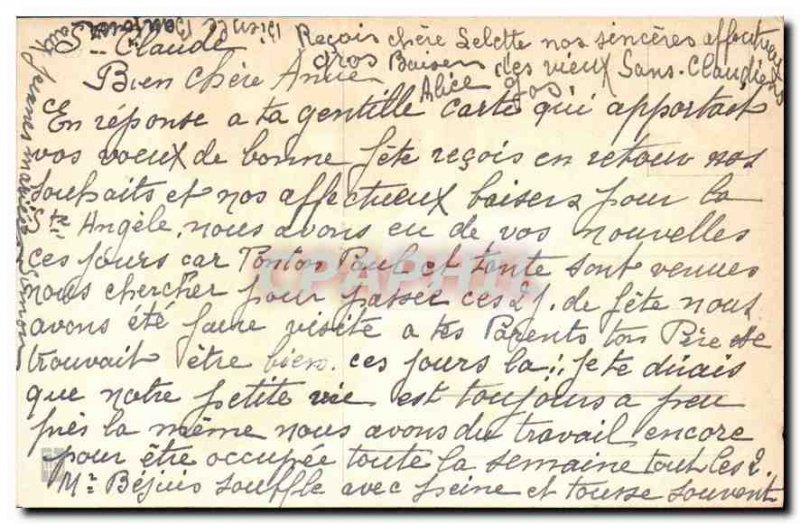 Ste Claude
Bien chère Amie
En réponse a ta gentille carte qui apportait
vos voeux de bonne fête reçois en retour nos
souhaits et nos affectueux baisers pour la
Ste Angèle, nous avons eu de vos nouvelles
ces jours car Tonton Paul et tante sont venues
nous chercher pour passer ces 2 j. de fête nous
avons été faire visite a tes Parents ton Père se
trouvait être bien ces jours la !! je te dirais
que notre petite vie est toujours a peu
près la même nous avons du travail encore
pour être occupée toute la semaine tout les 2.
Mr Béjuis souffle avec peine et tousse souvent
Reçois chère Selette nos sincères affectueux
gros Baisers des vieux Sans-Claudiens
Alice
CPAPHIL